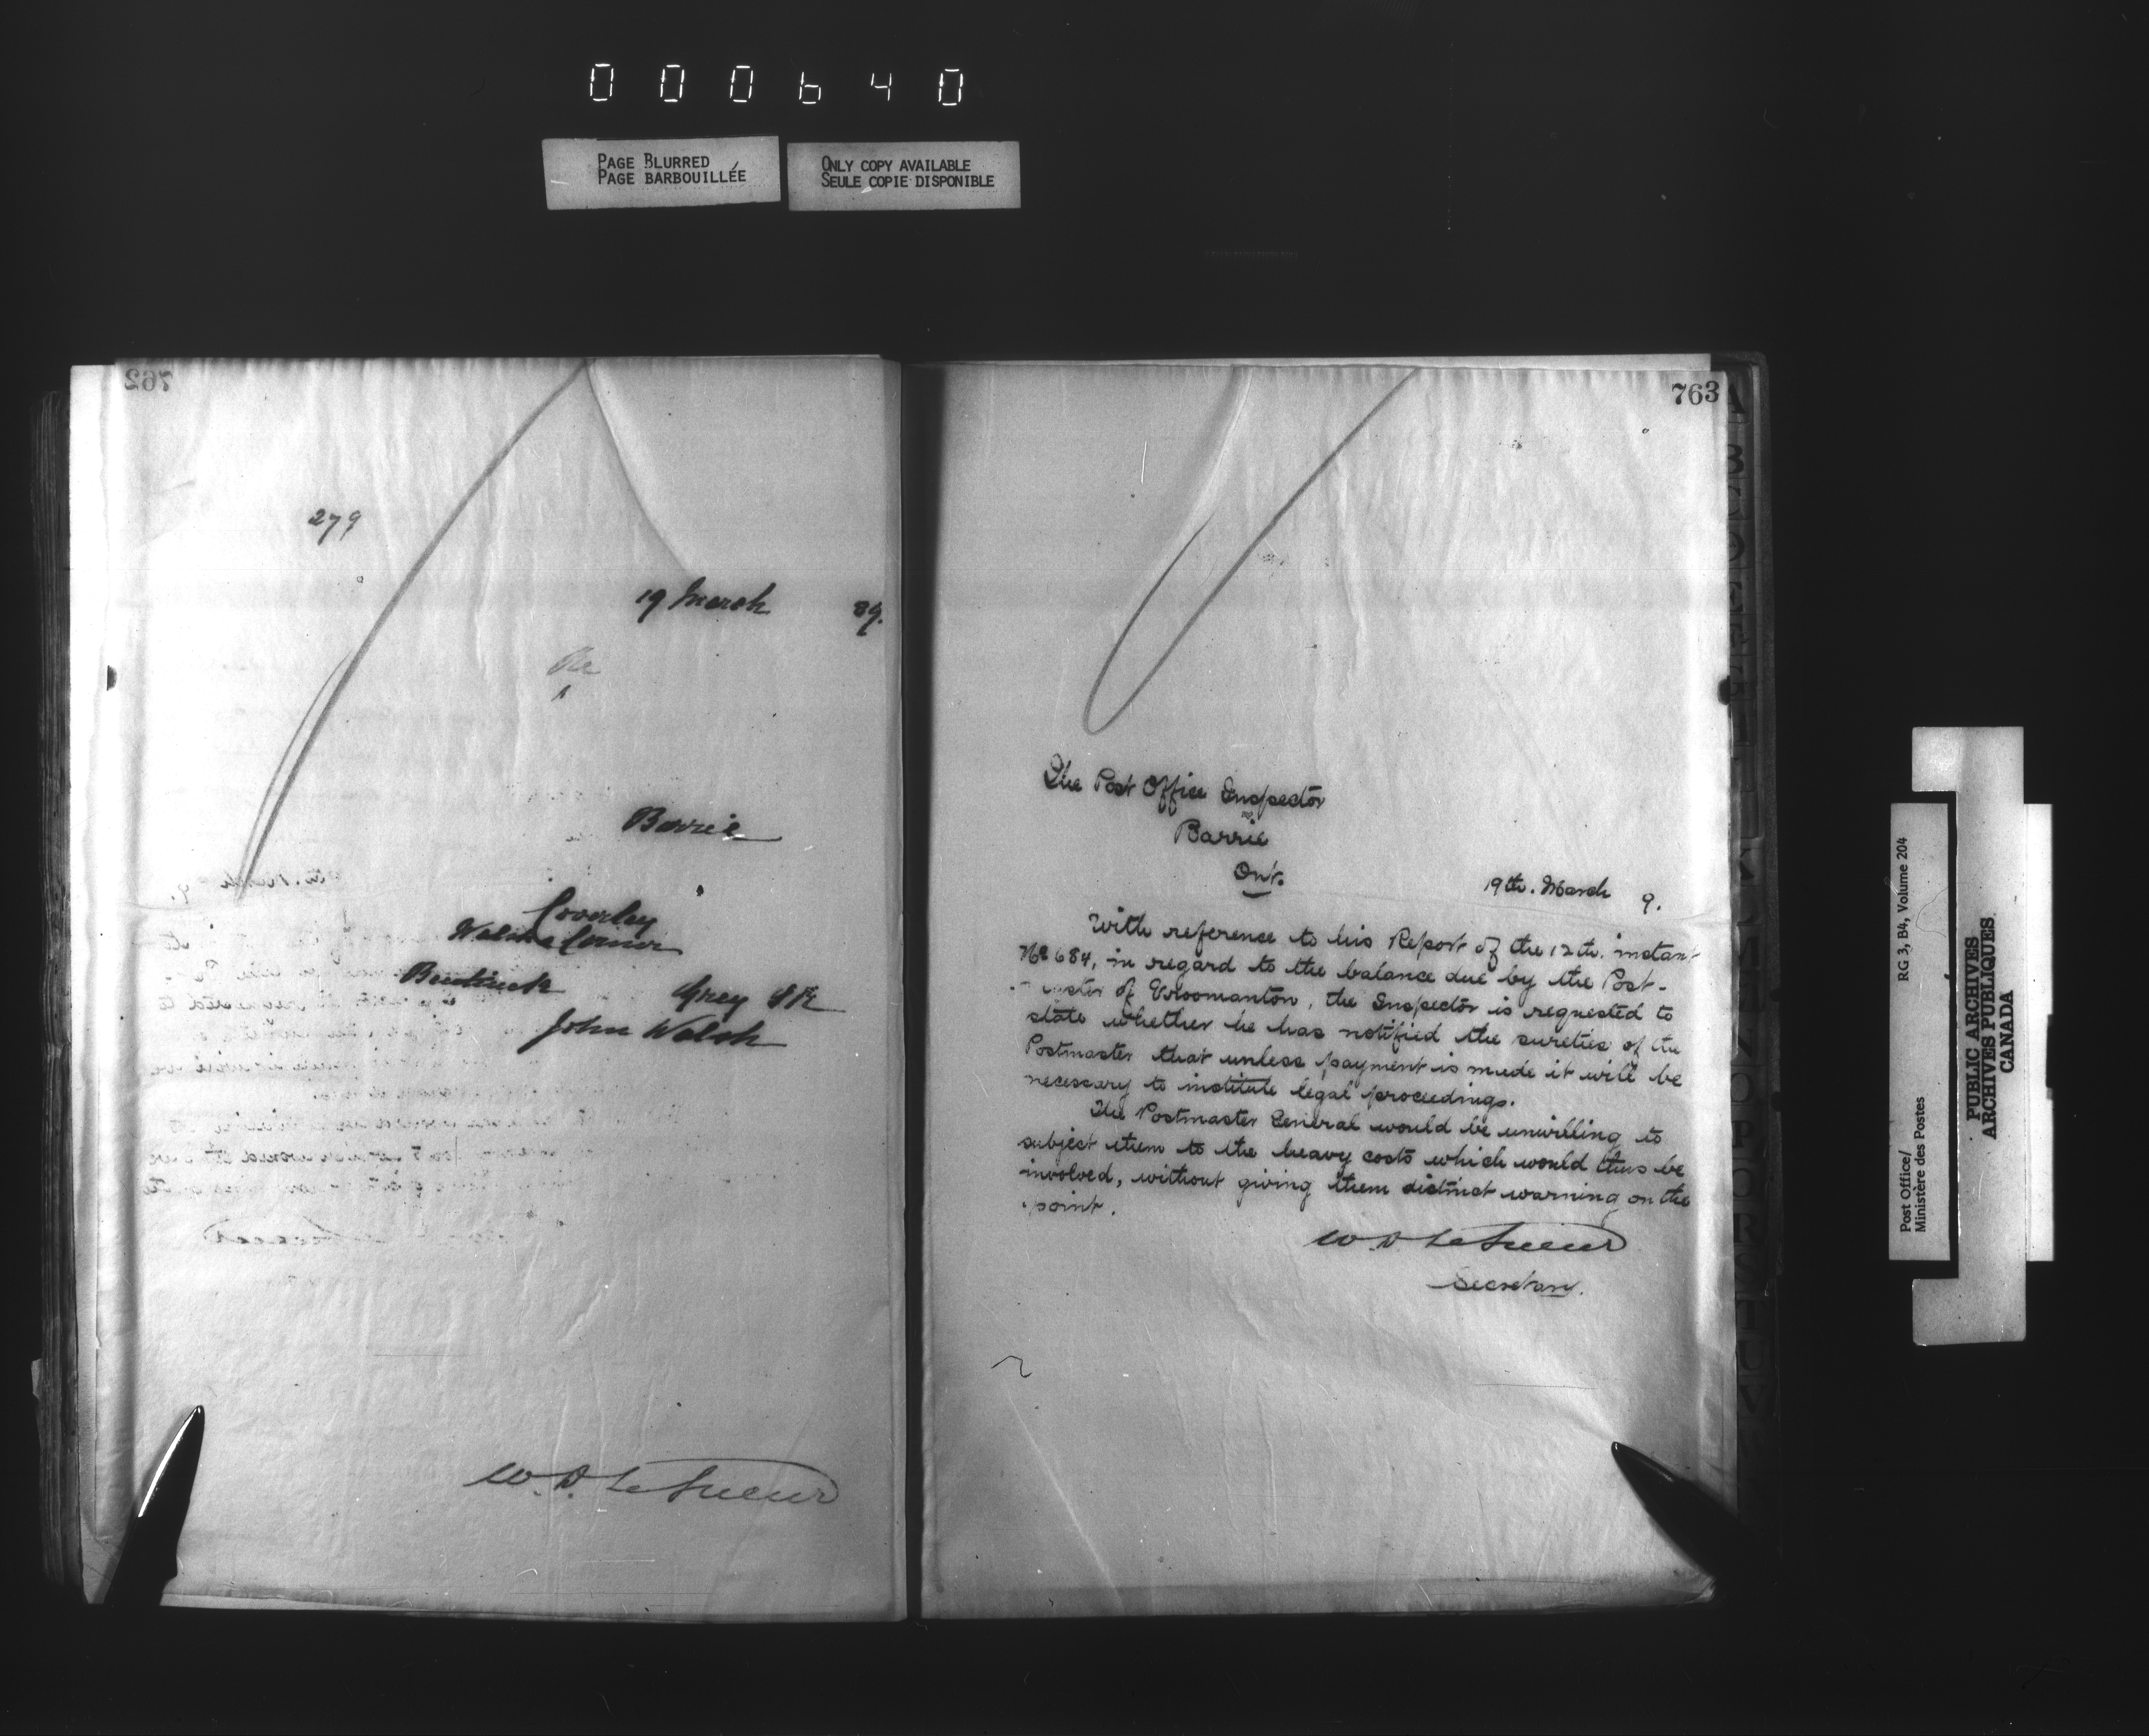 000640
PAGE BLURRED
PAGE BARBOUILLÉE
ONLY COPY AVAILABLE
SEULE COPIE DISPONIBLE
762
279
19 March 89.
Barrie
Coverley
Bentinck Grey S R
John Walsh
W. D. LeSueur
763
The Post Office Inspector
Barrie
Ont.
19th. March 9.
With reference to his Report of the 12th. instant
No 684, in regard to the balance due by the Post-
master of Vroomanton, the Inspector is requested to
state whether he has notified the sureties of the
Postmaster that unless payment is made it will be
necessary to institute legal proceedings.
The Postmaster General would be unwilling to
subject them to the heavy costs which would thus be
involved, without giving them distinct warning on the
point.
W. D. LeSueur
Secretary.
Post Office/ RG 3, B4, Volume 204
Ministère des Postes
PUBLIC ARCHIVES
ARCHIVES PUBLIQUES
CANADA